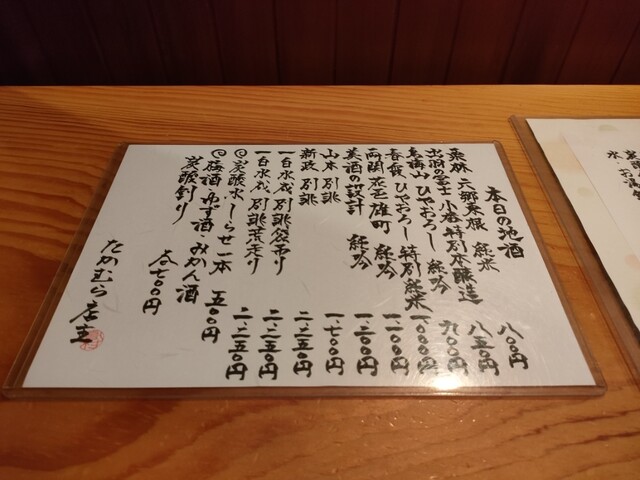 本日の地酒
栗林 六郷東根 純米 八〇〇円
出羽の富士 特別本醸造 八五〇円
鳥海山 ひやおろし 純吟 九〇〇円
春霞 ひやおろし 特別純米 一、〇〇〇円
両関 花邑 雄町 純吟 一、一〇〇円
美酒の設計 純吟 一、三〇〇円
山本 別誂 一、七〇〇円
新政 別誂 二、二五〇円
一白水成 別誂袋吊り 二、二五〇円
一白水成 別誂荒走り 二、二五〇円
◎炭酸水しらせ一本 五〇〇円
◎梅酒・ゆず酒・みかん酒
炭酸割り 各七〇〇円
たかむら 店主
水、お湯